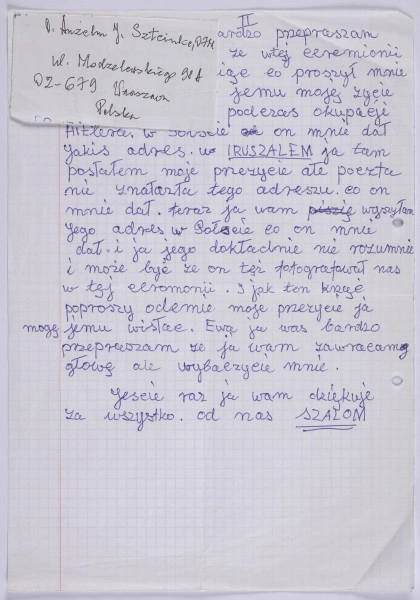 O. Anzelm J. Szteinke, OFM
ul. Modzelewskiego 98A
02-679 Warszawa
Polska
II
ardzo przepraszam
że w tej ceremonii
iąże co prosził mnie
jemu moję życie
podczas okupacje
Hitlera. w Sobocie on mnie dał
jakis adres. w IRUSZALEM ja tam
posłałem moje przeżycie ale poczta
nie znalazła tego adreszu. co on
mnie dał. teraz ja wam piszię wyszyłam
Jego adres w Polscie co on mnie
dał. i ja jego dokładnie nie rozumnie
i może być że on też fotografawał nas
w tej ceromonii. I jak ten kręże
poproszy odemie moje przeżycie ja
mogę jemu wisłac. Ewą ja was bardzo
przepraszam ze ja wam zawracamę
głowę ale wybaczycie mnie.
Jescie raz ja wam dziękuje
za wszystko. od nas SZALOM